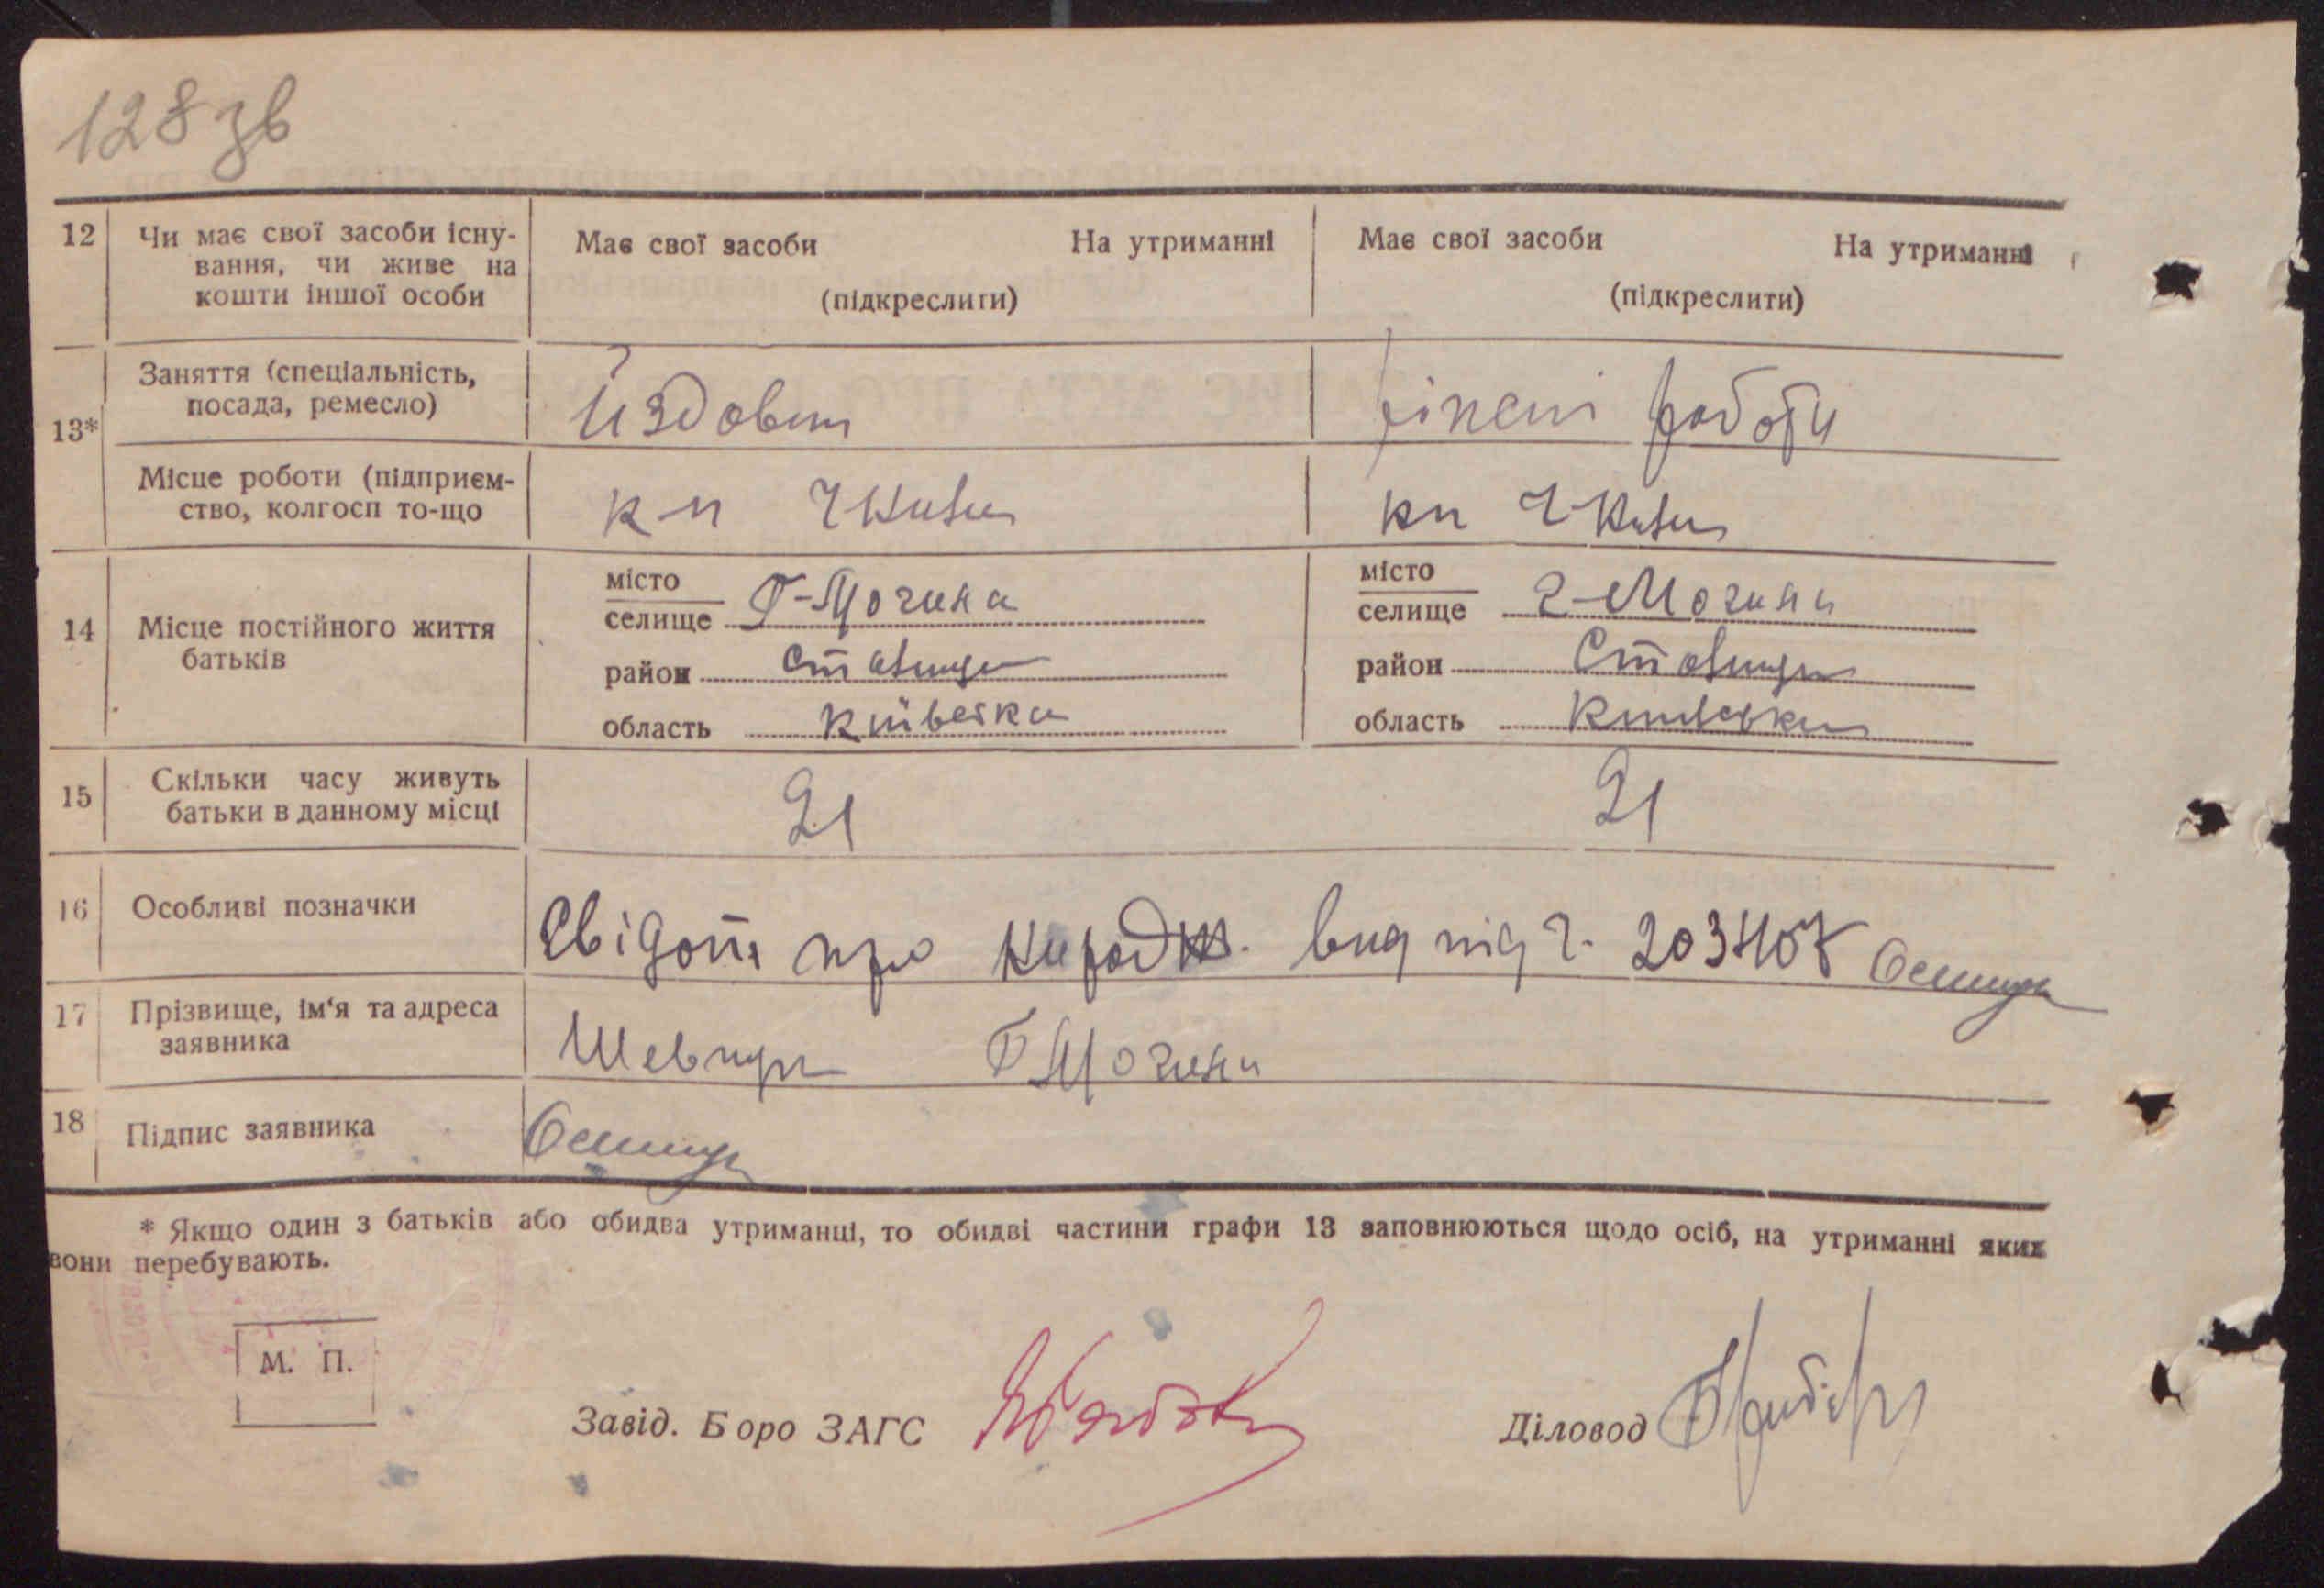 128 зв
12 Чи має свої засоби існу-
вання, чи живе на
кошти іншої особи
Має свої засоби На утриманні
(підкреслити)
Має свої засоби На утриманні
(підкреслити)
13*
Заняття (спеціальність,
посада, ремесло)
Їздовий
різні роботи
Місце роботи (підприєм-
ство, колгосп то-що
к-п
кп
14 Місце постійного життя
батьків
місто
селище Г-Могила
район Ставище
область Київська
місто
селище Г-Могила
район Ставище
область Київська
15 Скільки часу живуть
батьки в данному місці
21
21
16 Особливі позначки
Свідоп про народж. вид під ч.
17 Прізвище, ім'я та адреса
заявника
Шевчук Г Могила
18 Підпис заявника
* Якщо один з батьків або обидва утриманці, то обидві частини графи 13 заповнюються щодо осіб, на утриманні яких
вони перебувають.
М. П.
Завід. Боро ЗАГС
Діловод